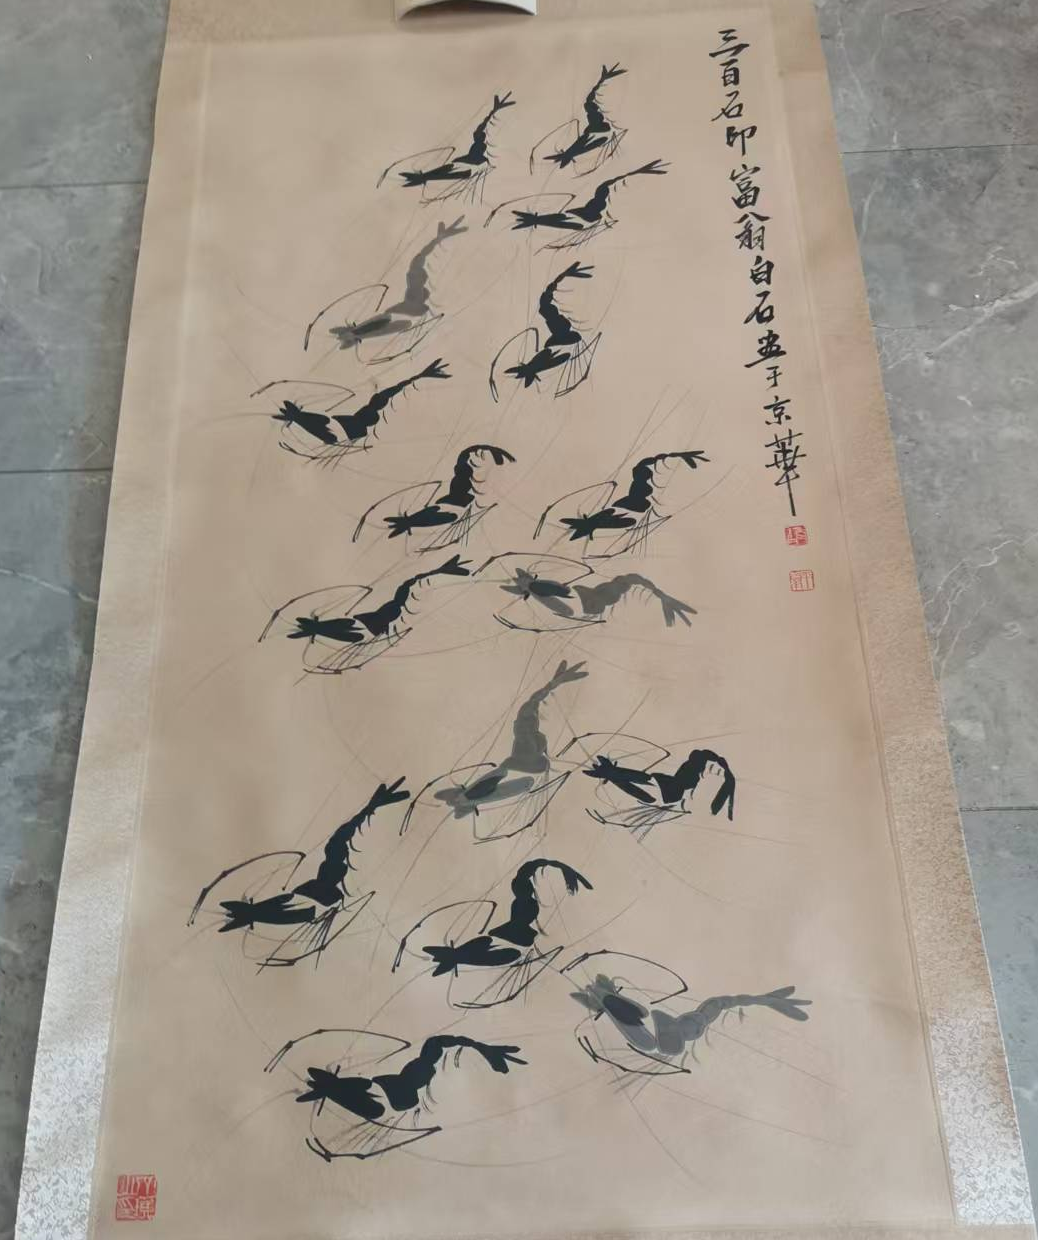 三百石印富翁白石画于京華